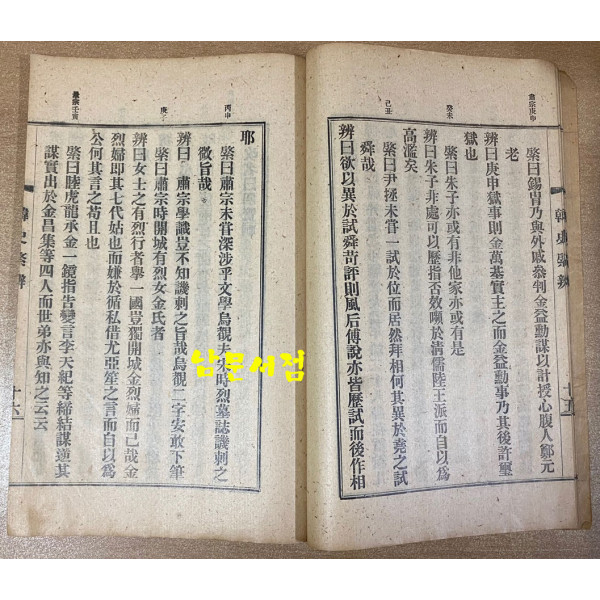 肅宗庚申
癸未
己丑
綮曰錫胄乃與外戚叅判金益勳謀以計授心腹人鄭元
老
辨曰庚申獄事則金萬基實主之而金益勳事乃其後許璽
獄也
綮曰朱子亦或有非他家亦或有是
辨曰朱子非處可以歷指否效嚬於淸儒陸王派而自以爲
高濫矣
綮曰尹拯未嘗一試於位而居然拜相何其異於堯之試
舜哉
辨曰欲以異於試舜苛評則風后傅說亦皆歷試而後作相
韓史綮辨
十五
丙申
庚子
景宗壬寅
耶
綮曰肅宗未嘗深涉乎文學烏覩夫宋時烈墓誌譏刺之
微旨哉
辨曰肅宗學識豈不知譏刺之旨哉烏覩二字安敢下筆
綮曰肅宗時開城有烈女金氏者
辨曰女士之有烈行者舉一國豈獨開城金烈婦而已哉金
烈婦卽其七代姑也而嫌於循私借尤亞笙之言而自以爲
公何其言之苟且也
綮曰睦虎龍承金一鏡指告變言李天紀等締結謀逆其
謀實出於金昌集等四人而世弟亦與知之云云
韓史綮辨
十六
남문서점